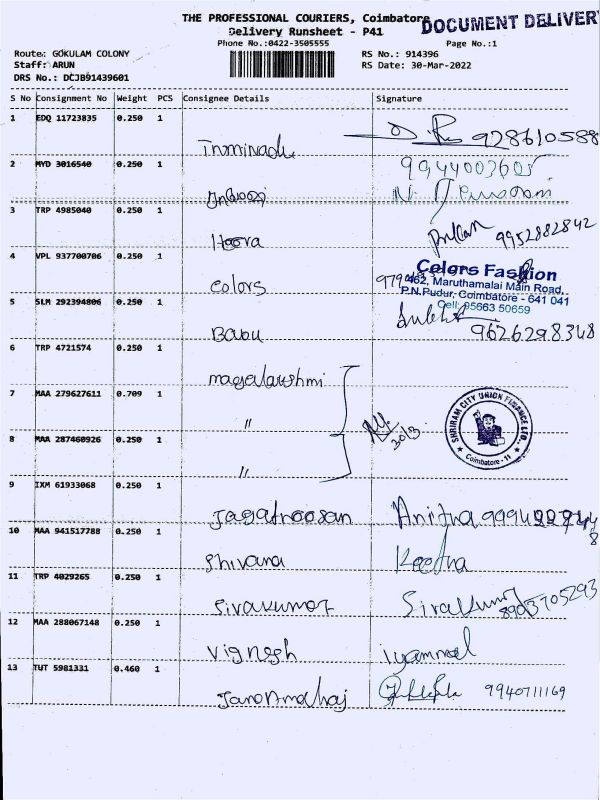 THE PROFESSIONAL COURIERS, Coimbatore
DOCUMENT DELIVERY
Delivery Runsheet - P41
Phone No.:0422-3505555
Page No.:1
Route: GOKULAM COLONY
RS No.: 914396
Staff: ARUN
RS Date: 30-Mar-2022
DRS No.: DCJB91439601
S No Consignment No Weight PCS Consignee Details Signature
1 EDQ 11723835 0.250 1
928610588
2 MYD 3016540 0.250 1
9944003605
3 TRP 4985040 0.250 1
Heera 9952882842
4 VPL 937700706 0.250 1
Colors
Colors Fashion
462, Maruthamalai Main Road,
P.N.Pudur, Coimbatore - 641 041
Cell: 95663 50659
5 SLM 292394806 0.250 1
Babu 9626298348
6 TRP 4721574 0.250 1
magalakshmi
7 MAA 279627611 0.709 1
"
30/3
SHRIRAM CITY UNION FINANCE LTD.,
Coimbatore - 11
8 MAA 287460926 0.250 1
"
9 IXM 61933068 0.250 1
Jagatheesan Anitha
10 MAA 941517788 0.250 1
Shivana Keetha
11 TRP 4029265 0.250 1
Sivakumar Sivakumar 8903705293
12 MAA 288067148 0.250 1
Vignesh
13 TUT 5981331 0.460 1
9940711169